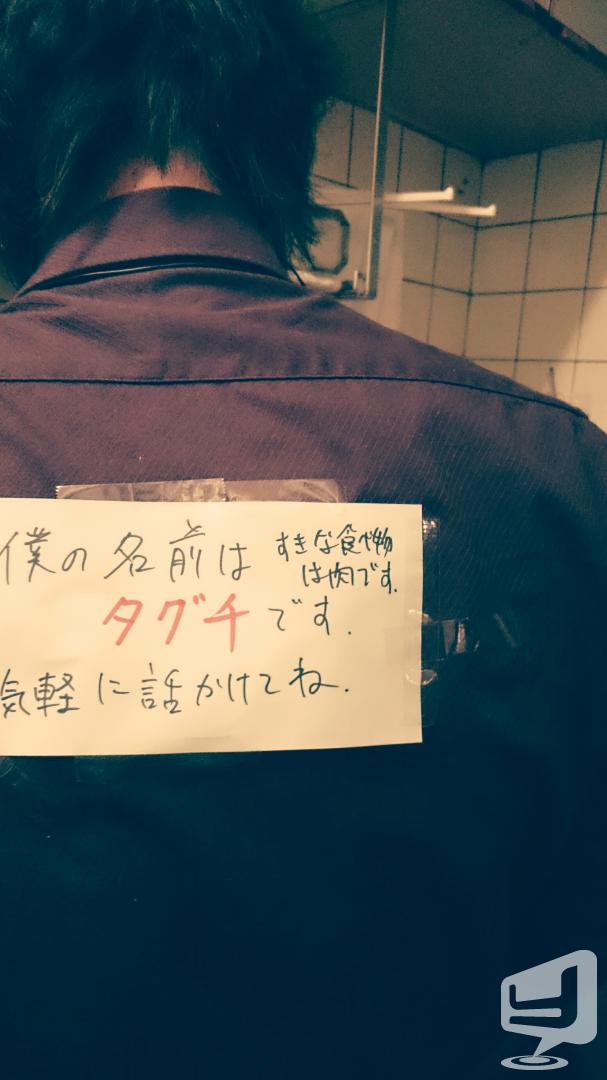 僕の名前は
すきな食べ物
は肉です.
タグチです.
気軽に話かけてね.